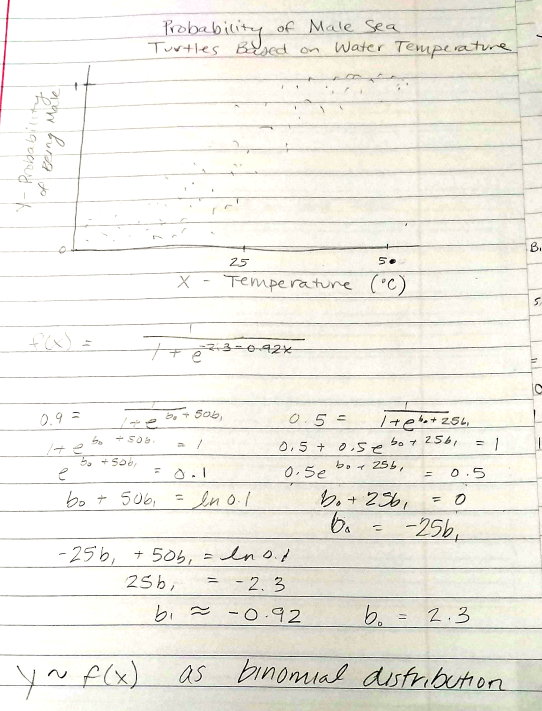 Probability of Male Sea
Turtles Based on Water Temperature
Y - Probability
of Being Male
1
0
25
50
X - Temperature (°C)
f(x) = 1 / 1 + e^2.3-0.92x
0.9 = 1 / 1 + e^b₀ + 50b₁
1 + e^b₀ + 50b₁ = 1
e^b₀ + 50b₁ = 0.1
b₀ + 50b₁ = ln 0.1
0.5 = 1 / 1 + e^b₀ + 25b₁
0.5 + 0.5e^b₀ + 25b₁ = 1
0.5e^b₀ + 25b₁ = 0.5
b₀ + 25b₁ = 0
b₀ = -25b₁
-25b₁ + 50b₁ = ln 0.1
25b₁ = -2.3
b₁ ≈ -0.92
b₀ = 2.3
y ~ f(x) as binomial distribution